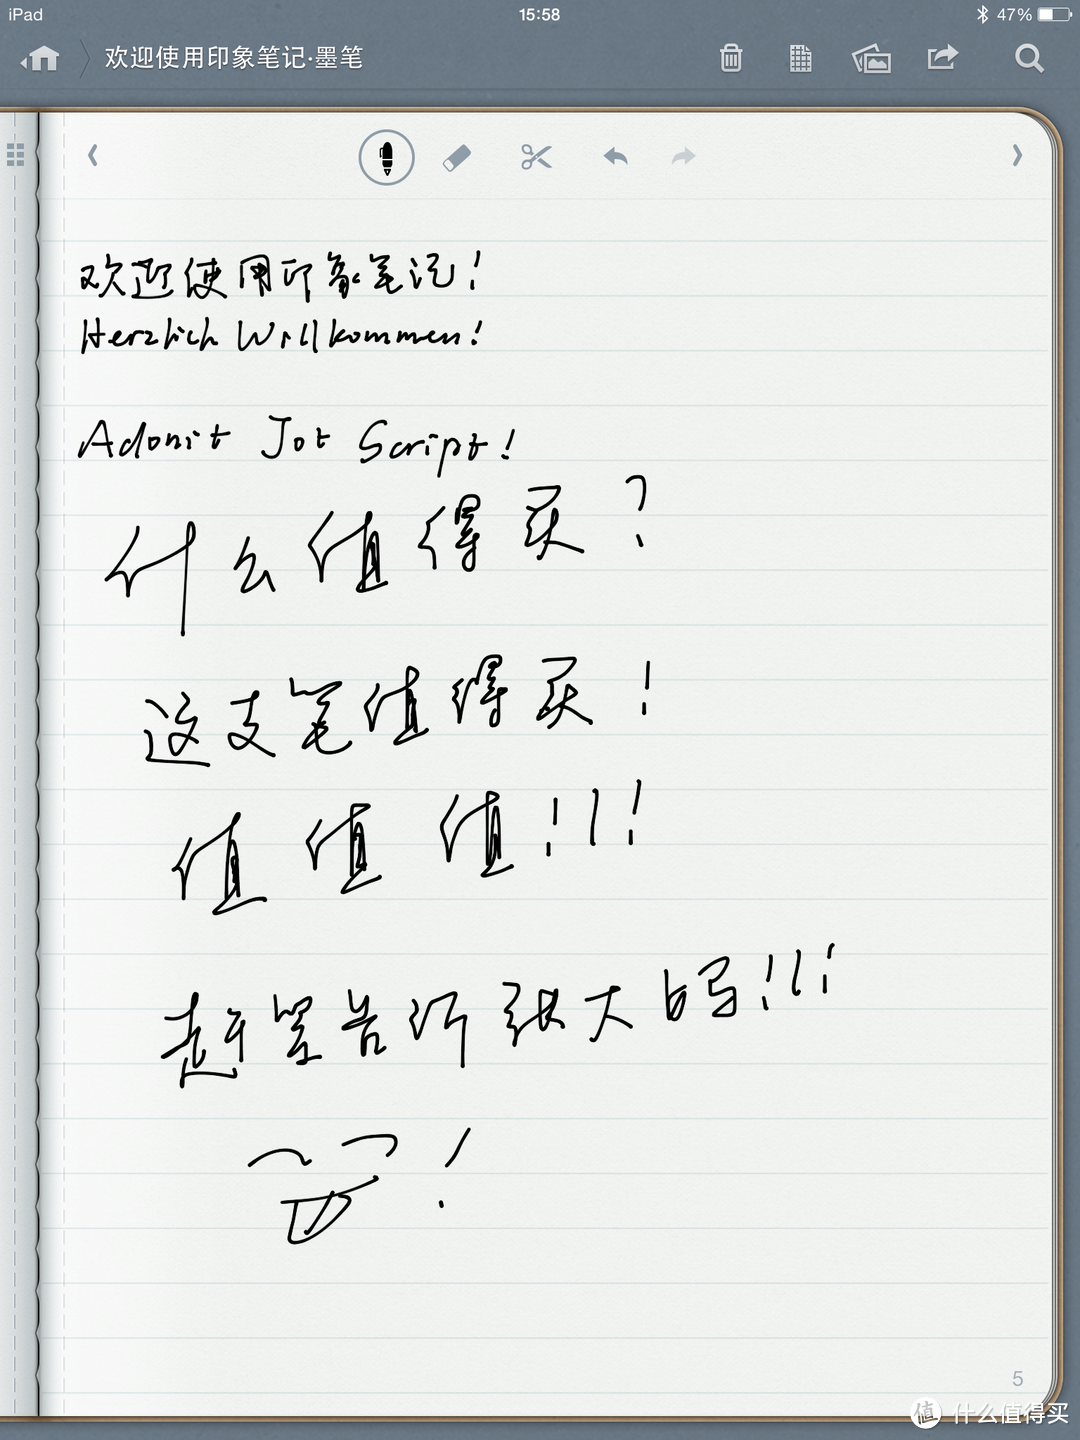 iPad 15:58 47%
欢迎使用印象笔记·墨笔
欢迎使用印象笔记!
Herzlich Willkommen!
Adonit Jot Script!
什么值得买?
这支笔值得买!
值值值!!!
赶紧告诉张大妈!!!
!
5
值 什么值得买